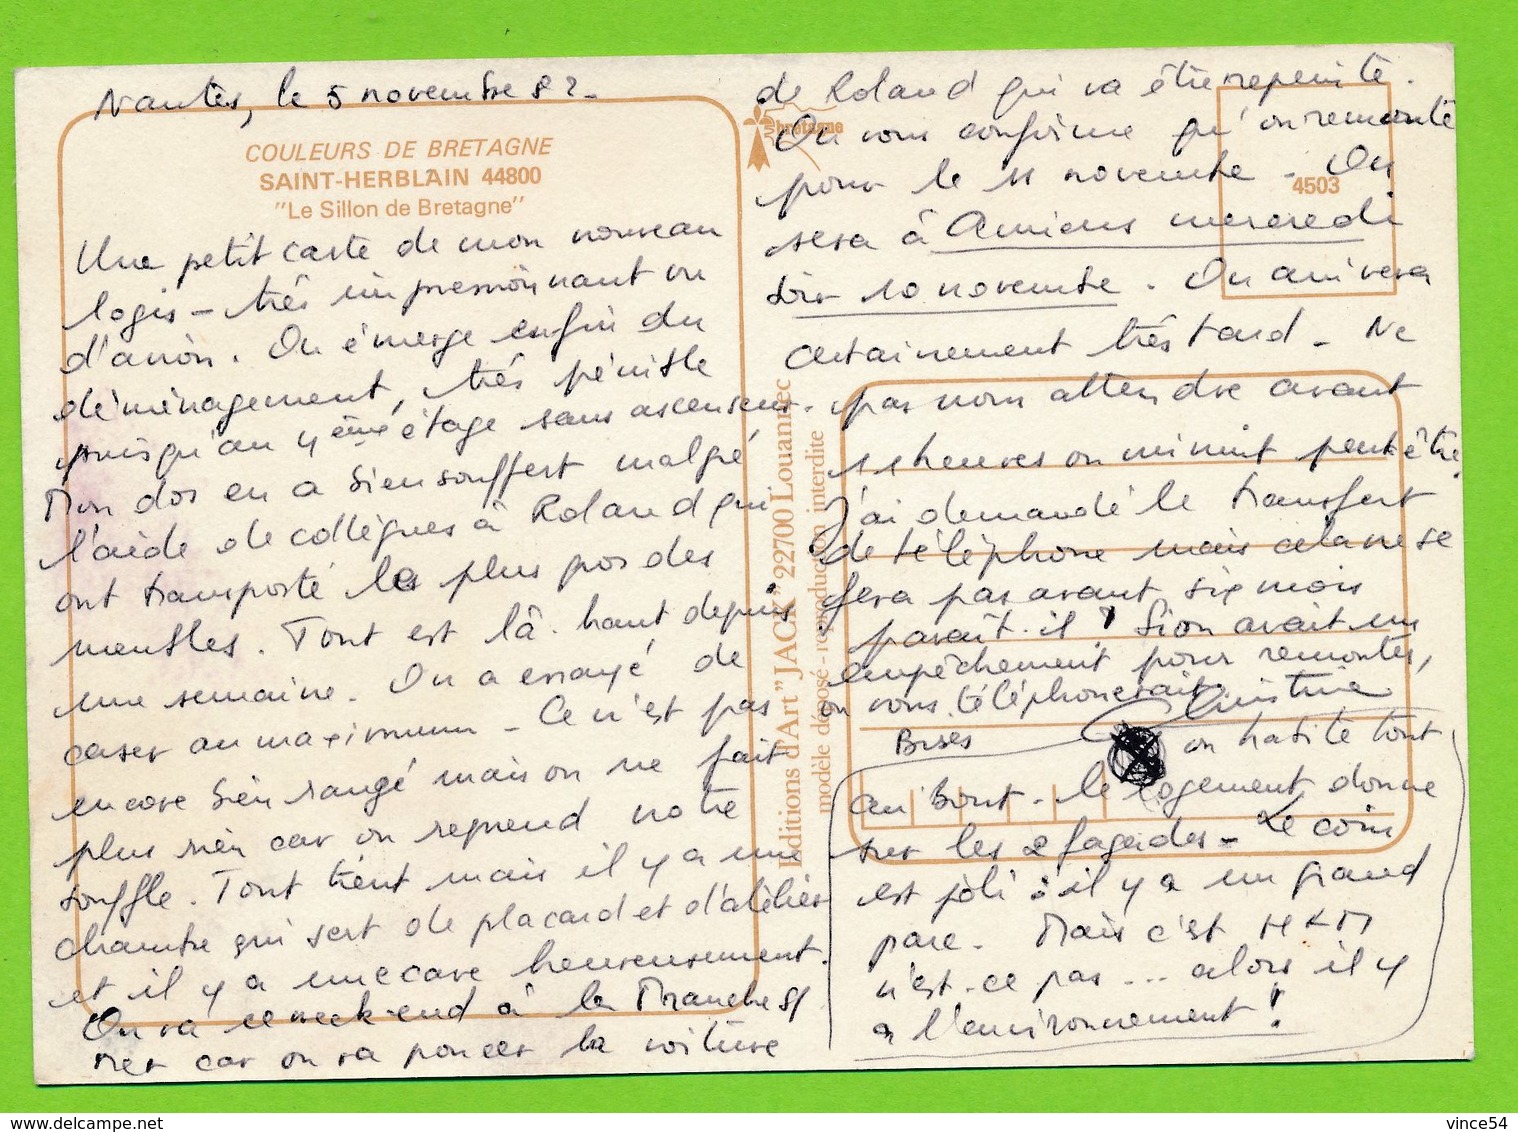 Nantes, le 5 novembre 82.
COULEURS DE BRETAGNE
SAINT-HERBLAIN 44800
"Le Sillon de Bretagne"
Une petit carte de mon nouveau
logis – très impressionnant vu
d'avion. On émerge enfin du
déménagement, très pénible
puisqu'au 4ème étage sans ascenseur.
Mon dos en a bien souffert malgré
l'aide de collègues à Roland qui
ont transporté les plus gros des
meubles. Tout est là-haut depuis
une semaine. On a essayé de
caser au maximum – Ce n'est pas
encore bien rangé mais on ne fait
plus rien car on reprend notre
souffle. Tout tient mais il y a une
chambre qui sert de placard et d'atelier
et il y a une cave heureusement.
On va ce week-end à la Tranche s/
mer car on va poncer la voiture
de Roland qui va être repeinte.
On vous confirme qu'on remonte
pour le 11 novembre. On
sera à Amiens mercredi
soir 10 novembre. On arrivera
certainement très tard – Ne
pas nous attendre avant
11 heures ou minuit peut être.
J'ai demandé le transfert
de téléphone mais cela ne se
fera pas avant six mois
parait-il ! Si on avait un
empêchement pour remonter,
on vous téléphonerait
Christine
Bises
on habite tout
au bout. le logement donne
sur les 2 façades – Le coin
est joli : il y a un grand
parc. Mais c'est HLM
n'est-ce pas ... alors il y
a l'environnement !
bretagne
4503
Editions d'Art "JACK" 22700 Louannec
modèle déposé - reproduction interdite
vince54